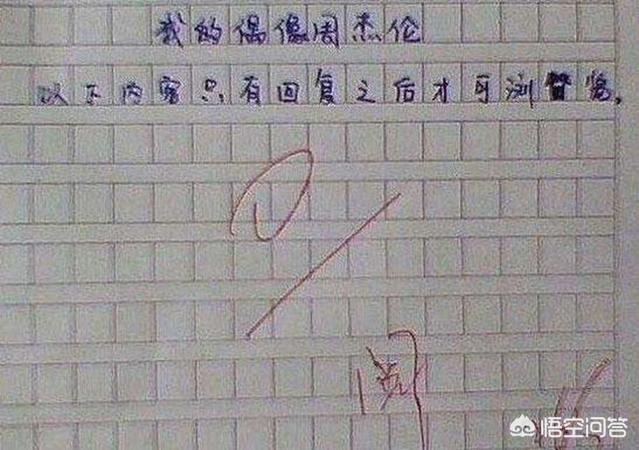 我的偶像周杰伦
以下内容只有回复之后才可浏览。
阅
悟空问答